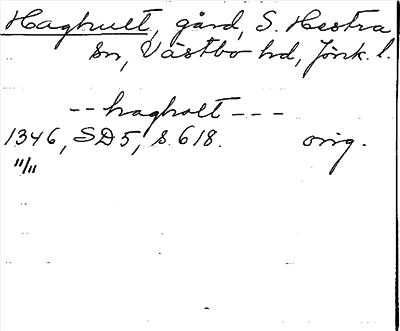 Haghult, gård, S. Hestra
sn, Västbo hd, Jönk. l.
-- hagholt ---
1346, SD 5, s. 618. orig.
"/"